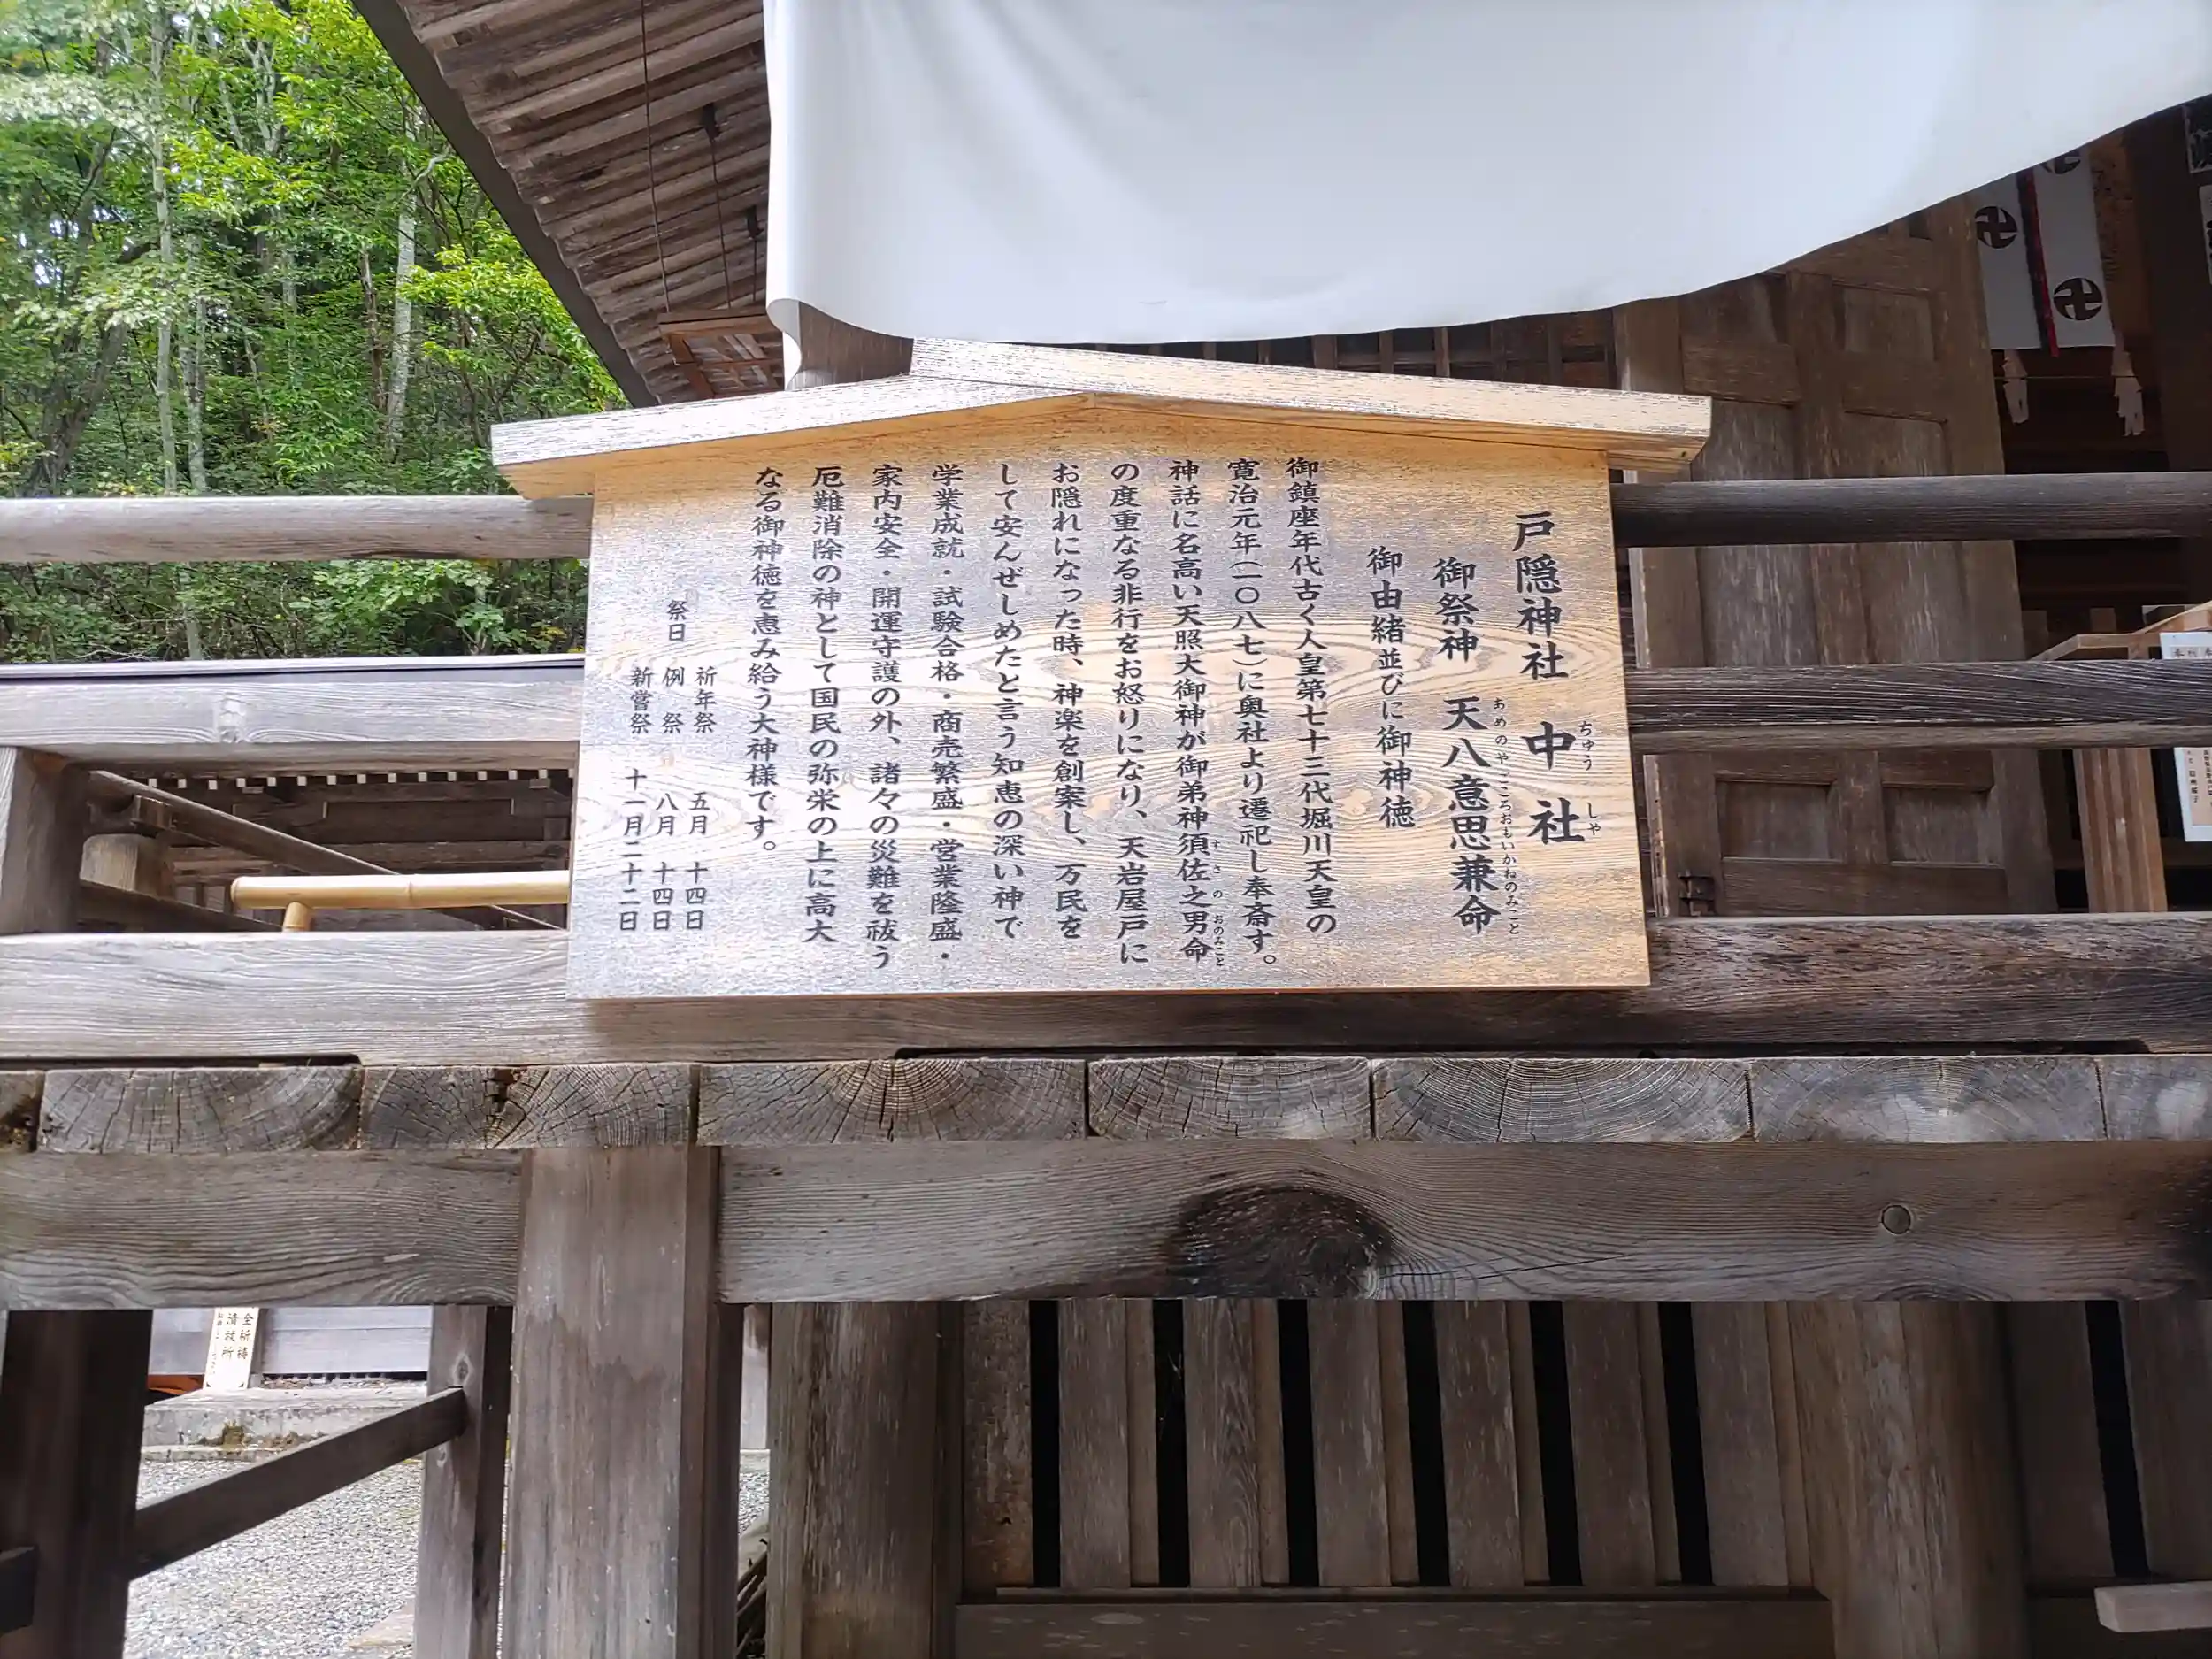 戸隠神社 中社
ちゅう しゃ
御祭神 天八意思兼命
あめのやごころおもいかねのみこと
御由緒並びに御神徳
御鎮座年代古く人皇第七十三代堀川天皇の
寛治元年(一〇八七)に奥社より遷祀し奉斎す。
神話に名高い天照大御神が御弟神須佐之男命
すさのおのみこと
の度重なる非行をお怒りになり、天岩屋戸に
お隠れになった時、神楽を創案し、万民を
して安んぜしめたと言う知恵の深い神で
学業成就・試験合格・商売繁盛・営業隆盛・
家内安全・開運守護の外、諸々の災難を祓う
厄難消除の神として国民の弥栄の上に高大
なる御神徳を恵み給う大神様です。
祈年祭 五月 十四日
祭日 例 祭 八月 十四日
新嘗祭 十一月二十二日
全祈祷
清祓所